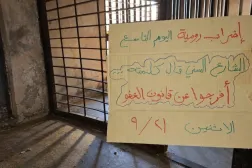 إضراب رومية اليوم التاسع
الشارع السني قال كلمته
أفرجوا عن قانون العفو
الاثنين ٩/٢١